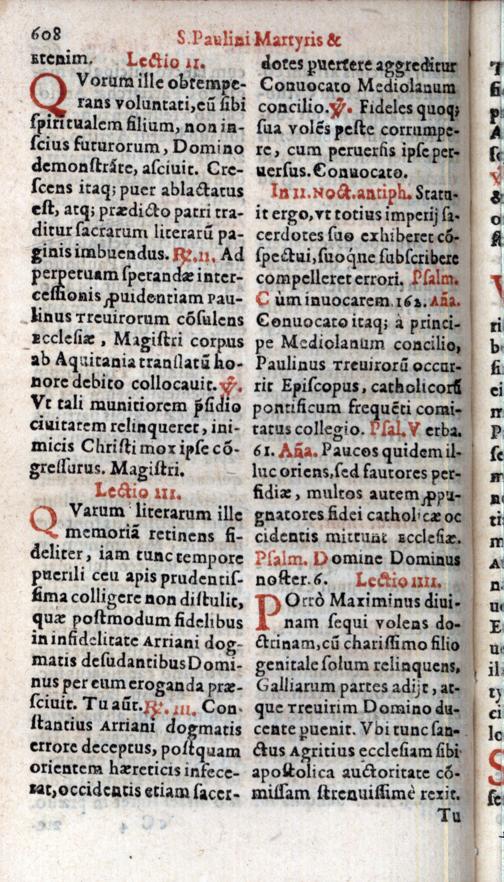 608
S. Paulini Martyris &
ετenim. Lectio II.
QVorum ille obtempe-
rans voluntati, eū sibi
spiritualem filium, non in-
scius futurorum, Domino
demonstrāte, asciuit. Cre-
scens itaq; puer ablactatus
est, atq; prædicto patri tra-
ditur sacrarum literarū pa-
ginis imbuendus. ℟. II. Ad
perpetuam sperandæ inter-
cessionis ꝓuidentiam Pau-
linus Treuirorum cōsulens
Ecclesiæ, Magistri corpus
ab Aquitania translatū ho-
nore debito collocauit. ℣.
Vt tali munitiorem p̄sidio
ciuitatem relinqueret, ini-
micis Christi mox ipse cō-
gressurus. Magistri.
Lectio III.
QVarum literarum ille
memoriā retinens fi-
deliter, iam tunc tempore
puerili ceu apis prudentis-
sima colligere non distulit,
quæ postmodum fidelibus
in infidelitate Arriani dog-
matis desudantibus Domi-
nus per eum eroganda præ-
sciuit. Tu aūt. ℟. III. Con-
stantius Arriani dogmatis
errore deceptus, postquam
orientem hæreticis infece-
rat, occidentis etiam sacer-
dotes puertere aggreditur
Conuocato Mediolanum
concilio. ℣. Fideles quoq;
sua volēs peste corrumpe-
re, cum peruersis ipse per-
uersus. Conuocato.
In II. Noct. antiph. Statu-
it ergo, vt totius imperij sa-
cerdotes suo exhiberet cō-
spectui, suoque subscribere
compelleret errori. Psalm.
Cùm inuocarem. 162. Aña.
Conuocato itaq; à princi-
pe Mediolanum concilio,
Paulinus Treuirorū occur-
rit Episcopus, catholicorū
pontificum frequēti comi-
tatus collegio. Psal. Verba.
61. Aña. Paucos quidem il-
luc oriens, sed fautores per-
fidiæ, multos autem ꝓpu-
gnatores fidei catholicæ oc
cidentis mittunt Ecclesiæ.
Psalm. Domine Dominus
noster. 6. Lectio IIII.
POrrò Maximinus diui-
nam sequi volens do-
ctrinam, cū charissimo filio
genitale solum relinquens,
Galliarum partes adijt, at-
que Treuirim Domino du-
cente puenit. Vbi tunc san-
ctus Agritius ecclesiam sibi
apostolica auctoritate cō-
missam strenuissimè rexit.
Tu